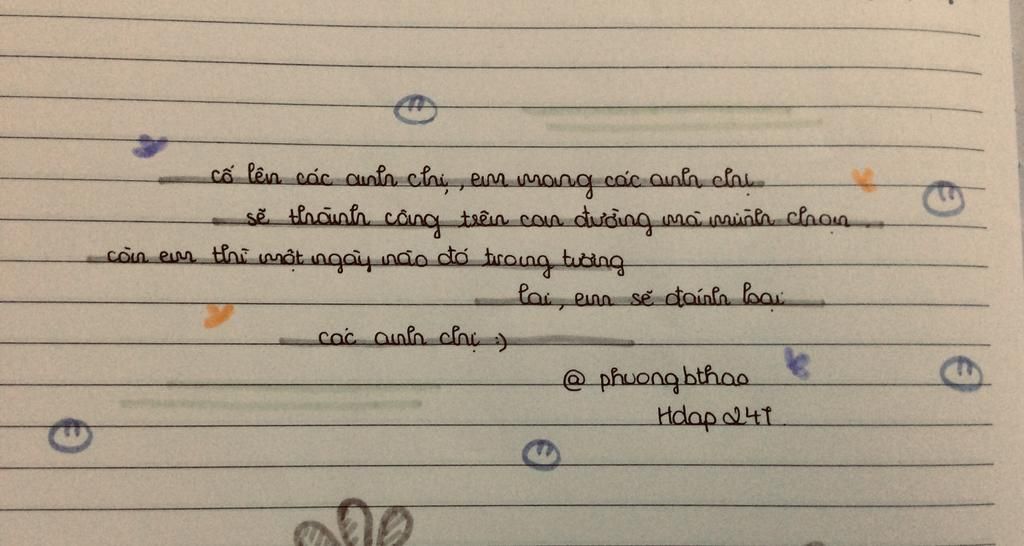 cố lên các anh chị, em mong các anh chị
sẽ thành công trên con đường mà mình chọn.
còn em thì một ngày nào đó trong tương
lai, em sẽ đánh loại
các anh chị :)
@ phuongbthao
Hdap 241.